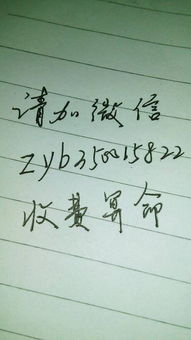 请加微信
zyb350015822
收费算命